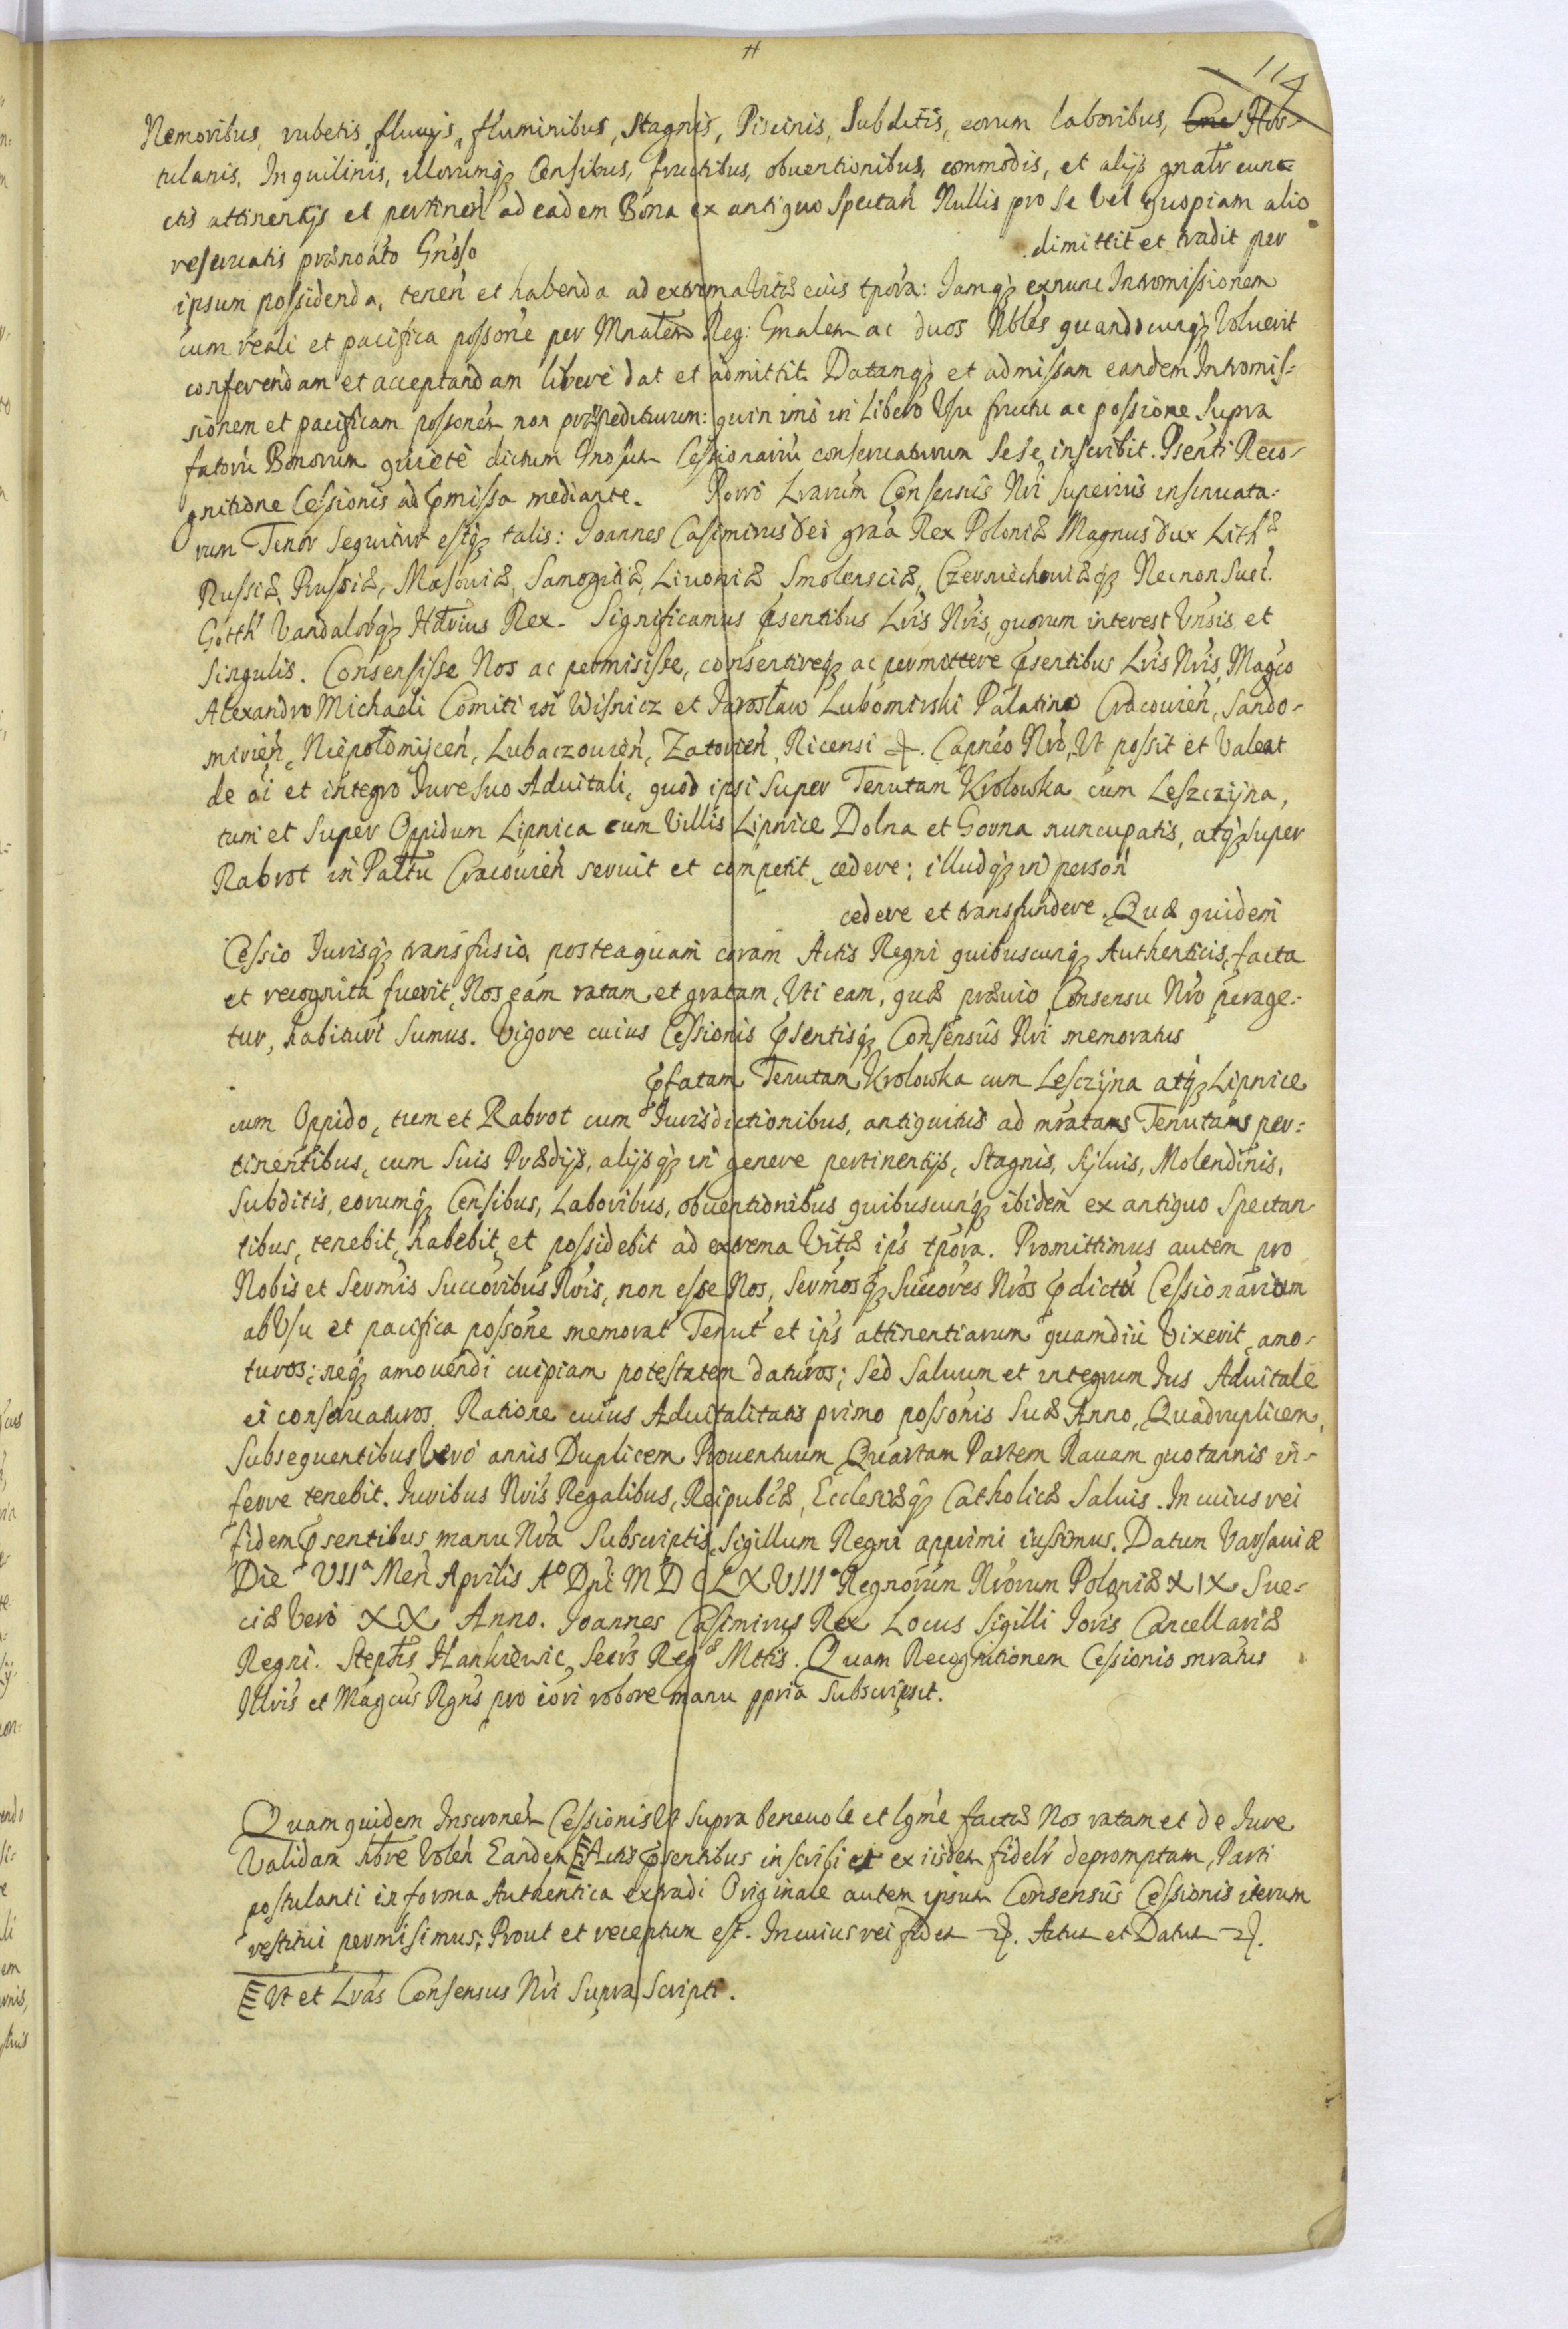 114
Nemoribus, rubetis, fluvijs, fluminibus, Stagnis, Piscinis, Subditis, eorum laboribus, Hor-
tulanis, Inquilinis, illorumq; Censibus, fructibus, obuentionibus, commodis, et alijs gnalr cun-
ctis attinentijs et pertinen ad eadem Bona ex antiquo Spectan Nullis pro se vel quopiam alio
reseruatis prænoato Gnoso
dimittit et tradit per
ipsum possidenda, tenen et habenda ad extrema Vitæ eius tpora: Iamq; exnunc Intromissionem
cum reali et pacifica possone per Mnatem Reg: Gnalem ac duos Nbles quandocunq; Voluerit
conferendam et acceptandam libere dat et admittit. Datamq; et admissam eandem Intromis-
sionem et pacificam possonem non præpediturum: quin imo in Libero Vsu fructu ac possione Supra
fatoru Bonorum quiete dictum Gnosum Cessionariu conseruaturum Sese inscribit. Psenti Reco-
gnitione Cessionis ad pmissa mediante. Porro Lrarum Consensus Nri Superius insinuata-
rum Tenor Sequitur estq; talis: Joannes Casimirus Dei graa Rex Poloniæ Magnus Dux Lithæ
Russiæ, Prussiæ, Masouiæ, Samogitiæ, Liuoniæ Smolensciæ, Czerniechouiæq; Necnon Suec.
Gotth Vandalorq; Hærius Rex. Significamus psentibus Lris Nris, quorum interest Vnsis et
Singulis. Consensisse Nos ac permisisse, consentireq; ac permittere psentibus Lris Nris, Magco
Alexandro Michaeli Comiti in Wisnicz et Jarosław Lubomirski Palatino Cracouien, Sando-
mirien, Niepołomijcen, Lubaczouien, Zatorien, Ricensi Capneo Nro, Vt possit et Valeat
de oi et integro Iure suo Aduitali, quod ipsi Super Tenutam Krolowka cum Leszczijna,
tum et Super Oppidum Lipnica cum Villis Lipnice Dolna et Gorna nuncupatis, atq; Super
Rabrot in Pattu Cracouien seruit et competit, cedere; illudq; in person
cedere et transfundere. Quæ quidem
Cessio Iurisq; transfusio, posteaquam coram Actis Regni quibuscunq; Authenticis, facta
et recognita fuerit, Nos eam ratam et gratam, Vti eam, quæ præuio Consensu Nro perage-
tur, habituri Sumus. Vigore cuius Cessionis psentisq; Consensus Nri memoratus
pfatam Tenutam Krolowka cum Lesczijna atq; Lipnice
cum Oppido, tum et Rabrot cum Iurisdictionibus, antiquitus ad mratams Tenutams per-
tinentibus, cum Suis Prædijs, alijsq; in genere pertinentijs, Stagnis, Sijluis, Molendinis,
Subditis, eorumq; Censibus, Laboribus, obuentionibus quibuscunq; ibidem ex antiquo Spectan-
tibus, tenebit, habebit, et possidebit ad extrema Vitæ ips tpora. Promittimus autem pro
Nobis et Sermis Succoribus Nris, non esse Nos, Sermosq; Succores Nros pdictu Cessionarium
ab Vsu et pacifica possone memorat Tenut et ips attinentiarum quamdiu Vixerit, amo-
turos; neq; amouendi cuipiam potestatem daturos; Sed Saluum et integrum Ius Aduitale
ei conseruaturos. Ratione cuius Aduitalitatis primo possonis Suæ Anno, Quadruplicem,
Subsequentibus Vero annis Duplicem Prouentuum Quartam Partem Rauam quotannis in-
ferre tenebit. Iuribus Nris Regalibus, Reipubcæ, Ecclesiæq; Catholicæ Saluis. In cuius rei
fidem psentibus manu Nra Subscriptis, Sigillum Regni apprimi iussimus. Datum Varsauiæ
Die VIIa Men Aprilis Ao Dni MDCLXVIIIo Regnorum Nrorum Poloniæ XIX Sue-
ciæ Vero XX Anno. Joannes Casimirus Rex Locus Sigilli Ioris Cancellariæ
Regni. Stephs Hankiewic Secrs Regæ Mttis. Quam Recognitionem Cessionis mratus
Illris et Magcus Rgns pro iori robore manu ppria Subscripsit.
Quam quidem Inscronem Cessionis Vt Supra beneuole et lgme factæ Nos ratam et de Iure
Validam hbre Volen Eandem Actis psentibus inscribi et ex iisdem fidelr depromptam, Parti
postulanti in forma Authentica extradi Originale autem ipsum Consensus Cessionis iterum
restitui permisimus; Prout et receptum est. In cuius rei fidem. Actum et Datum.
Vt et Lras Consensus Nri Supra Scripti.